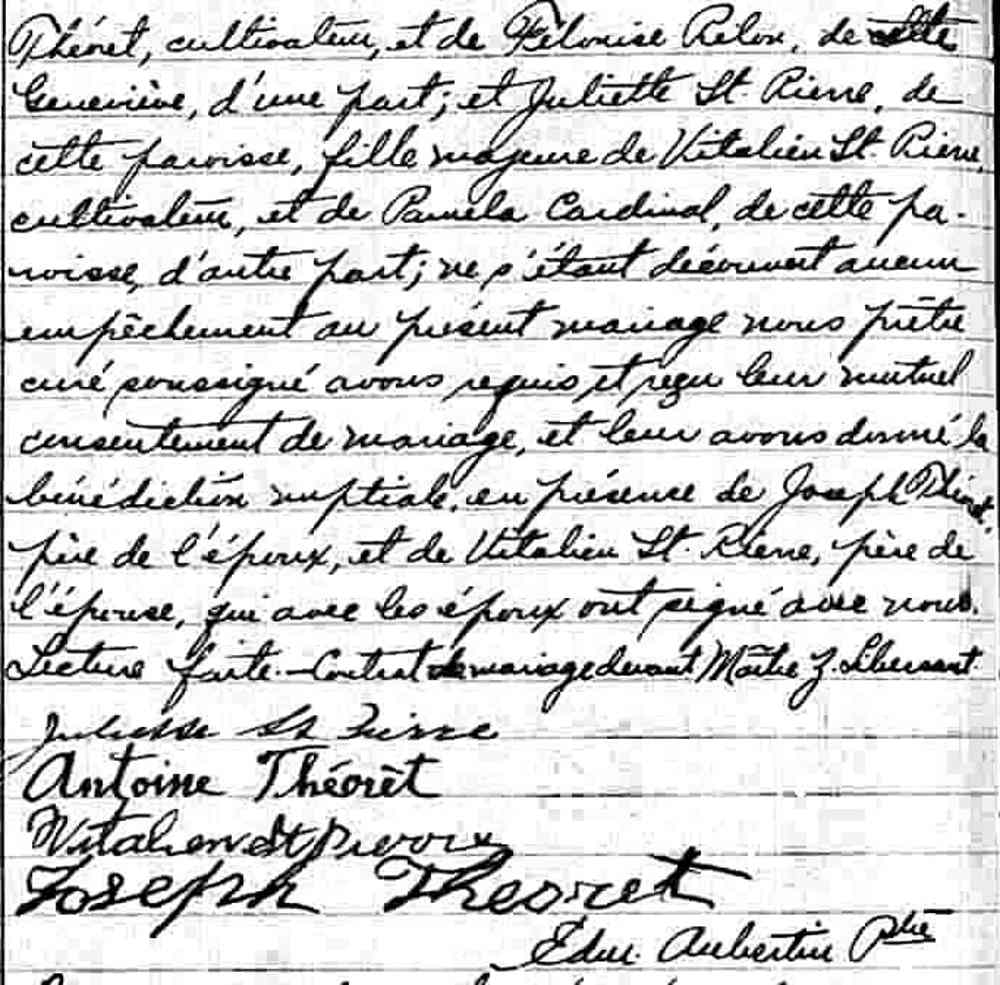 Théoret, cultivateur, et de Félonise Pilon, de
Geneviève, d'une part; et Juliette St. Pierre, de
cette paroisse, fille majeure de Vitalien St. Pierre,
cultivateur, et de Paméla Cardinal, de cette pa-
roisse, d'autre part; ne s'étant découvert aucun
empêchement au présent mariage nous prêtre
curé soussigné avons requis et reçu leur mutuel
consentement de mariage, et leur avons donné la
bénédiction nuptiale, en présence de Joseph Théoret,
père de l'époux, et de Vitalien St. Pierre, père de
l'épouse, qui avec les époux ont signé avec nous.
Lecture faite. - Contrat de mariage devant Maître
Juliette St Pierre
Antoine Théorêt
Vitalien St
Joseph Theoret
Edm. Aubertin Ptre